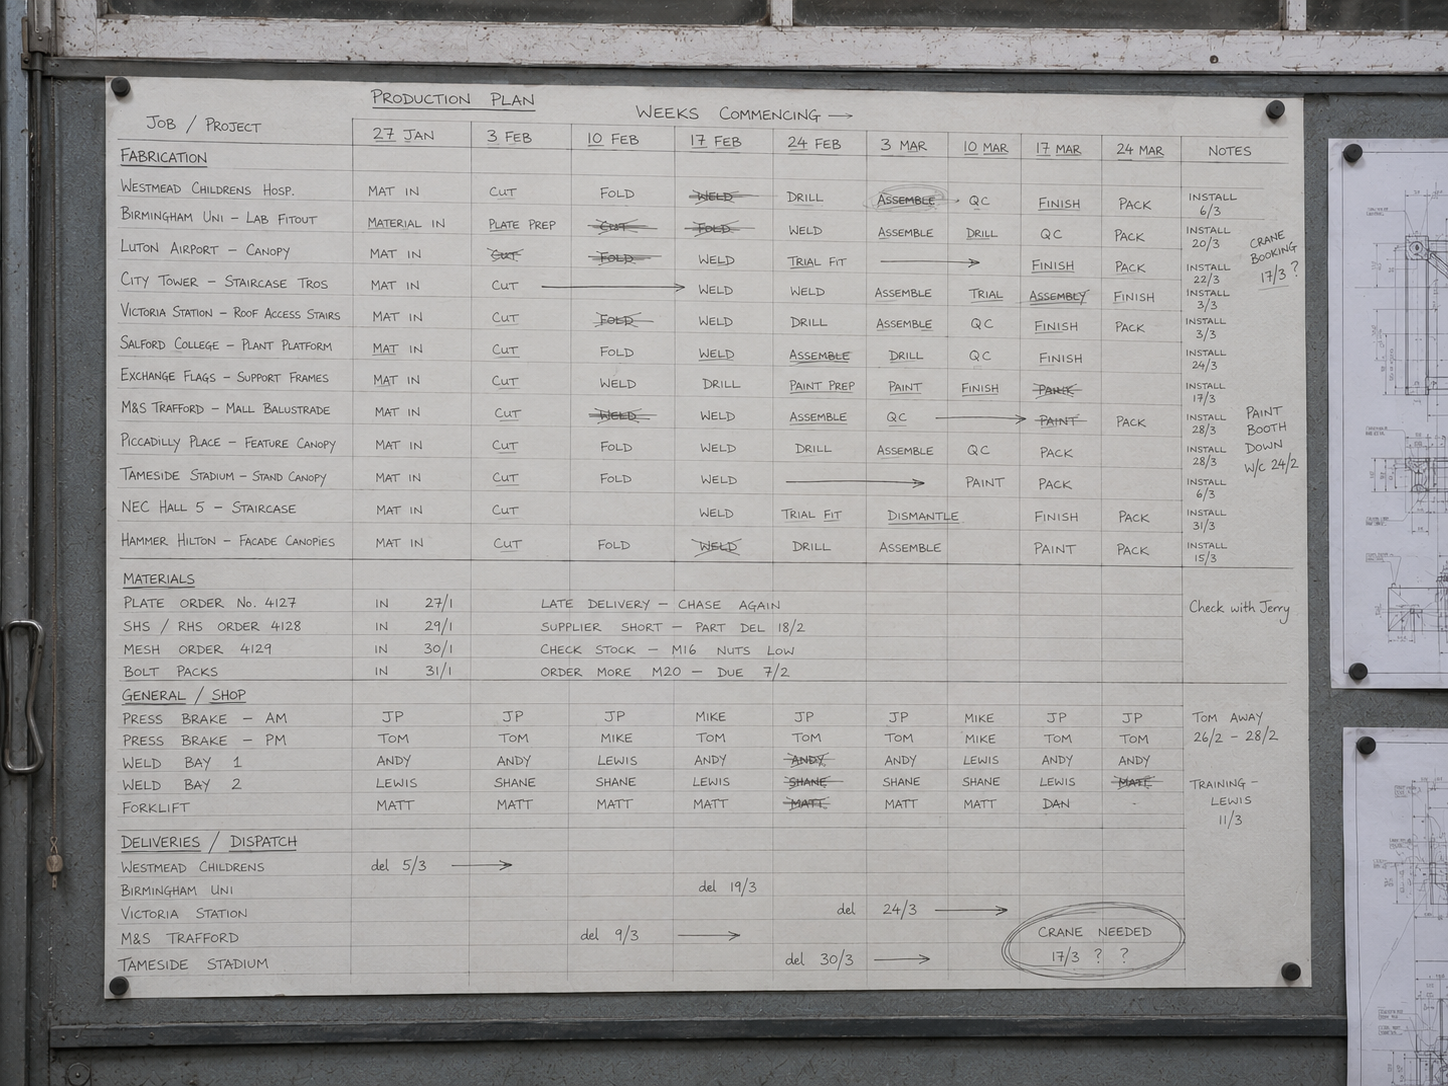 PRODUCTION PLAN
WEEKS COMMENCING →
JOB / PROJECT 27 JAN 3 FEB 10 FEB 17 FEB 24 FEB 3 MAR 10 MAR 17 MAR 24 MAR NOTES
FABRICATION
WESTMEAD CHILDRENS HOSP. MAT IN CUT FOLD WELD DRILL ASSEMBLE → QC FINISH PACK INSTALL 6/3
BIRMINGHAM UNI – LAB FITOUT MATERIAL IN PLATE PREP CUT FOLD WELD ASSEMBLE DRILL QC PACK INSTALL 20/3
LUTON AIRPORT – CANOPY MAT IN CUT FOLD WELD TRIAL FIT → FINISH PACK INSTALL 22/3
CRANE
BOOKING
17/3 ?
CITY TOWER – STAIRCASE TROS MAT IN CUT → WELD WELD ASSEMBLE TRIAL ASSEMBLY FINISH INSTALL 3/3
VICTORIA STATION – ROOF ACCESS STAIRS MAT IN CUT FOLD WELD DRILL ASSEMBLE QC FINISH PACK INSTALL 3/3
SALFORD COLLEGE – PLANT PLATFORM MAT IN CUT FOLD WELD ASSEMBLE DRILL QC FINISH INSTALL 24/3
EXCHANGE FLAGS – SUPPORT FRAMES MAT IN CUT WELD DRILL PAINT PREP PAINT FINISH INSTALL 17/3
M&S TRAFFORD – MALL BALUSTRADE MAT IN CUT WELD WELD ASSEMBLE QC → PAINT PACK INSTALL 28/3
PAINT
BOOTH
DOWN
W/C 24/2
PICCADILLY PLACE – FEATURE CANOPY MAT IN CUT FOLD WELD DRILL ASSEMBLE QC PACK INSTALL 28/3
TAMESIDE STADIUM – STAND CANOPY MAT IN CUT FOLD WELD → PAINT PACK INSTALL 6/3
NEC HALL 5 – STAIRCASE MAT IN CUT WELD TRIAL FIT DISMANTLE FINISH PACK INSTALL 31/3
HAMMER HILTON – FACADE CANOPIES MAT IN CUT FOLD WELD DRILL ASSEMBLE PAINT PACK INSTALL 15/3
MATERIALS
PLATE ORDER No. 4127 IN 27/1 LATE DELIVERY – CHASE AGAIN Check with Jerry
SHS / RHS ORDER 4128 IN 29/1 SUPPLIER SHORT – PART DEL 18/2
MESH ORDER 4129 IN 30/1 CHECK STOCK – M16 NUTS LOW
BOLT PACKS IN 31/1 ORDER MORE M20 – DUE 7/2
GENERAL / SHOP
PRESS BRAKE – AM JP JP JP MIKE JP JP MIKE JP JP TOM AWAY
PRESS BRAKE – PM TOM TOM MIKE TOM TOM TOM MIKE TOM TOM 26/2 – 28/2
WELD BAY 1 ANDY ANDY LEWIS ANDY ANDY ANDY LEWIS ANDY ANDY
WELD BAY 2 LEWIS SHANE SHANE LEWIS SHANE SHANE SHANE LEWIS MATT TRAINING –
FORKLIFT MATT MATT MATT MATT MATT MATT MATT DAN - LEWIS
11/3
DELIVERIES / DISPATCH
WESTMEAD CHILDRENS del 5/3 →
BIRMINGHAM UNI del 19/3
VICTORIA STATION del 24/3 →
M&S TRAFFORD del 9/3 → CRANE NEEDED
TAMESIDE STADIUM del 30/3 → 17/3 ? ?